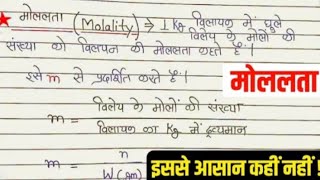 * मोललता (Molality) ⇒ 1 Kg विलायक में घुले
विलेय के मोलों की
संख्या को विलयन की मोललता कहते हैं।
इसे m से प्रदर्शित करते हैं।
मोललता
m = विलेय के मोलों की संख्या
विलायक का Kg में द्रव्यमान
m = n
W(gm)
इससे आसान कहीं नहीं!